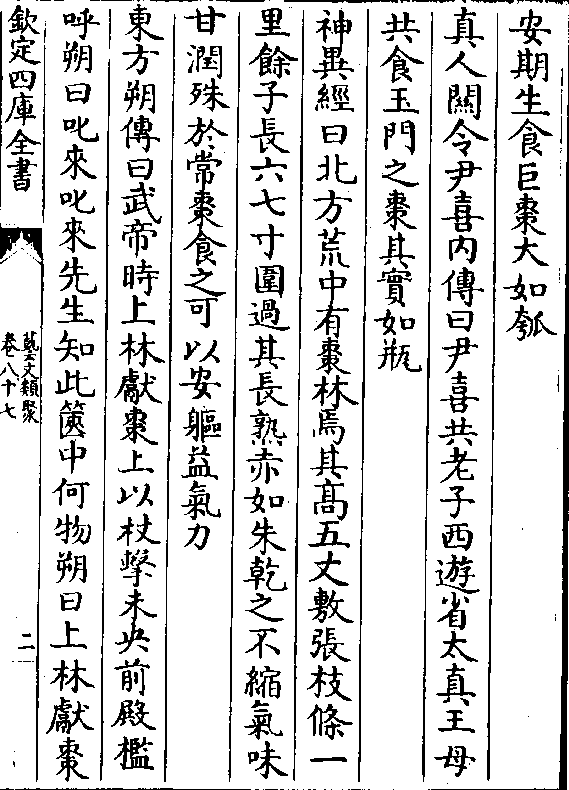 安期生食巨棗大如瓠
真人關令尹喜内傳曰尹喜共老子西遊省太真王母
共食玉門之棗其實如瓶
神異經曰北方荒中有棗林焉其高五丈敷張枝條一
里餘子長六七寸圍過其長熟赤如朱乾之不縮氣味
甘潤殊於常棗食之可以安軀益氣力
東方朔傳曰武帝時上林獻棗上以杖擊未央前殿檻
呼朔曰叱來叱來先生知此篋中何物朔曰上林獻棗
欽定四庫全書
藝文類聚
卷八十七
二